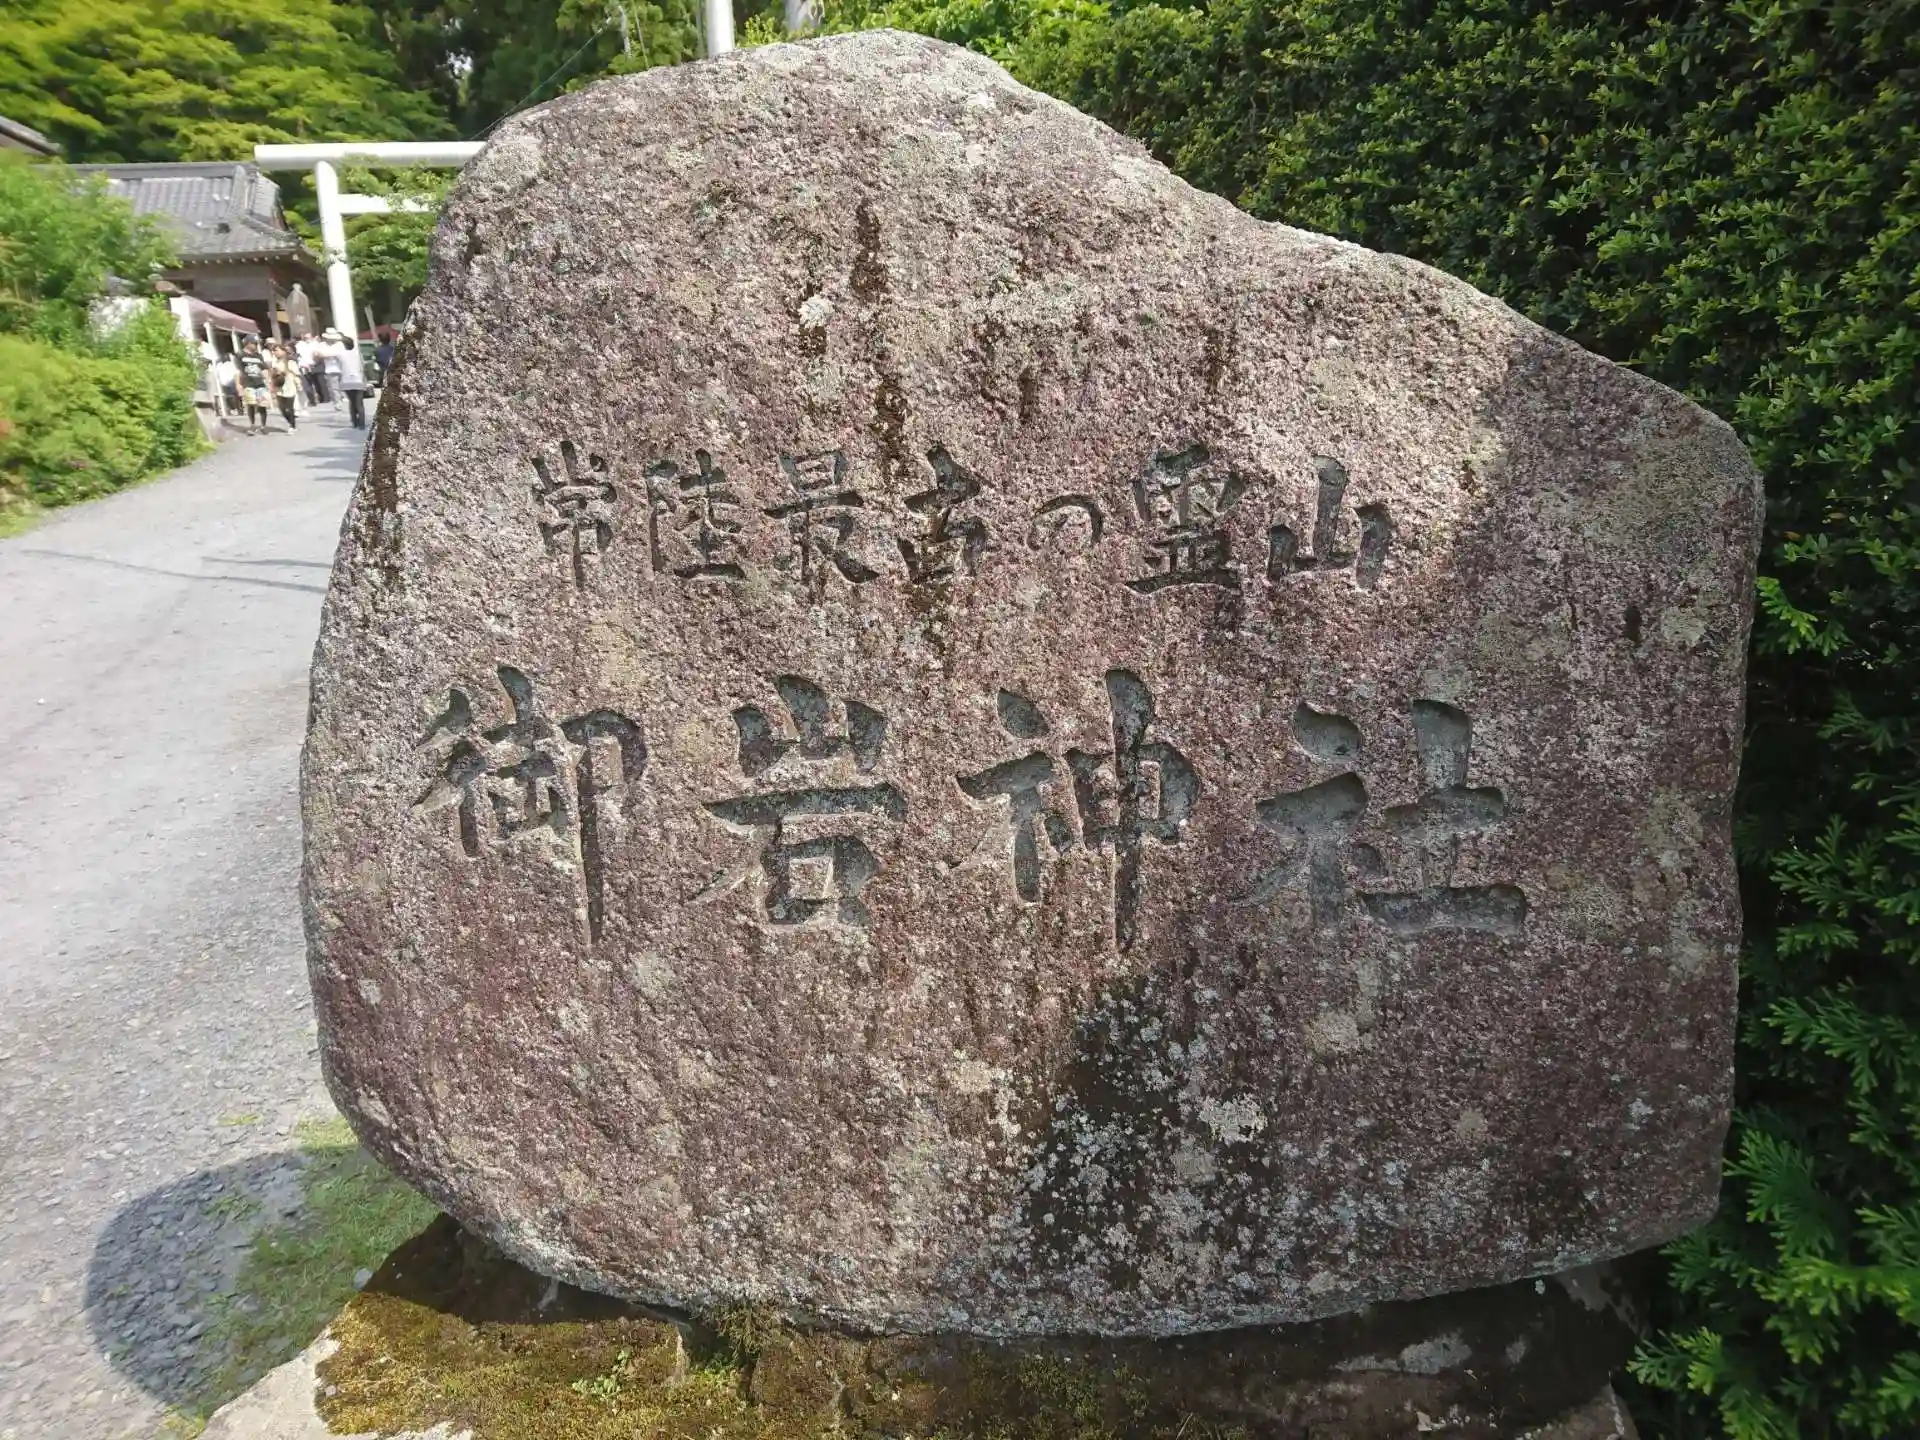 常陸最古の霊山
御岩神社